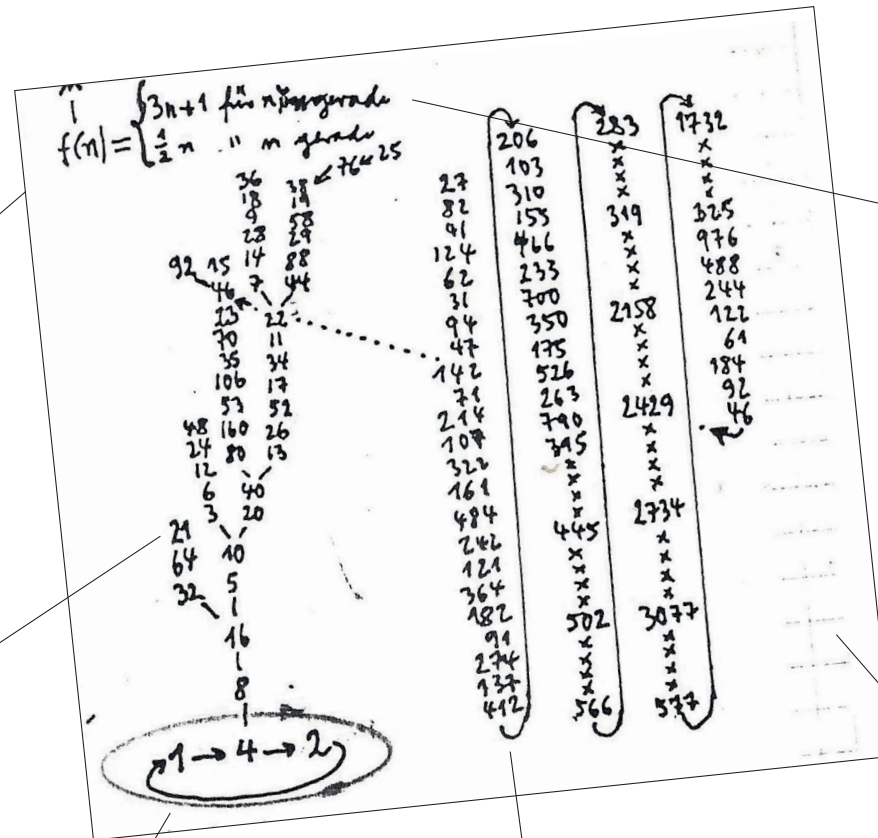 f(n) = { 3n+1 für n ungerade
½ n " n gerade
36
18
9
28
14
7
38 ← 76 ← 25
19
58
29
88
44
22
11
34
17
52
26
13
92
15
46
23
70
35
106
53
160
80
40
20
48
24
12
6
3
10
5
21
64
32
16
8
1 → 4 → 2
27
82
41
124
62
31
94
47
142
71
214
107
322
161
484
242
121
364
182
91
274
137
412
206
103
310
155
466
233
700
350
175
526
263
790
395
x
x
x
x
445
x
x
x
x
502
x
x
x
x
566
283
x
x
x
x
319
x
x
x
x
2158
x
x
x
x
2429
x
x
x
x
2734
x
x
x
x
3077
x
x
x
x
577
1732
x
x
x
x
325
976
488
244
122
61
184
92
46